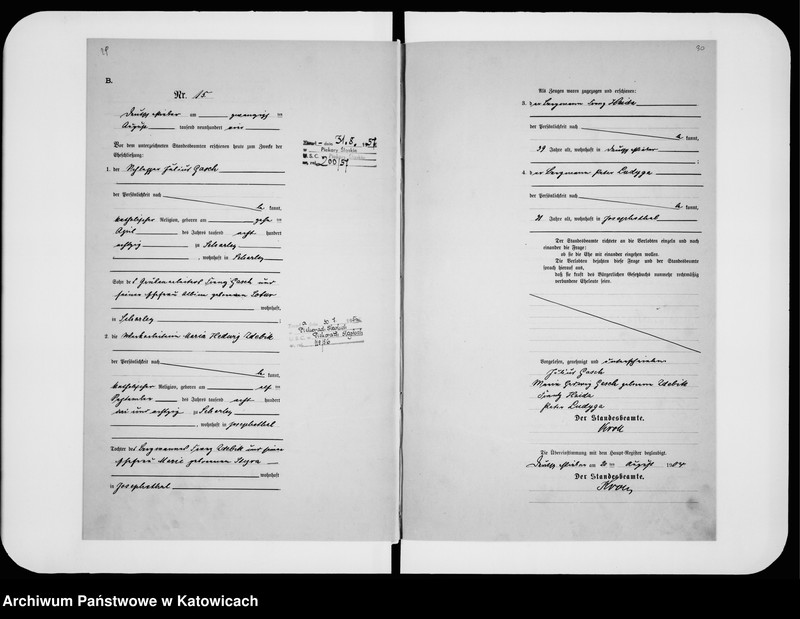 79
B.
Nr. 15
am zwanzigsten
August tausend neunhundert vier
Vor dem unterzeichneten Standesbeamten erschienen heute zum Zwecke der
Eheschließung:
1. der Schlepper Julius Gasch
der Persönlichkeit nach
kannt,
katholischer Religion, geboren am
April des Jahres tausend acht hundert
achtzig zu Scharley
, wohnhaft in Scharley
Sohn des Franz Gasch und
seiner Ehefrau Albine geborenen
wohnhaft
in Scharley ;
2. die Maria Hedwig Zdebik
der Persönlichkeit nach
kannt,
katholischer Religion, geboren am elf ten
September des Jahres tausend acht hundert
drei und achtzig zu Scharley
, wohnhaft in Josephsthal
Tochter des Bergmannes Franz Zdebik und seiner
Ehefrau Marie geborenen
wohnhaft
in Josephsthal
31.8. 1957
Piekary Śląskie
U.S.C.
200/57
80
Als Zeugen waren zugezogen und erschienen:
3. der Bergmann Franz Haida
der Persönlichkeit nach
kannt,
39 Jahre alt, wohnhaft in
;
4. der Bergmann Peter Ludyga
der Persönlichkeit nach
kannt,
Jahre alt, wohnhaft in Josephsthal
Der Standesbeamte richtete an die Verlobten einzeln und nach
einander die Frage:
ob sie die Ehe mit einander eingehen wollen.
Die Verlobten bejahten diese Frage und der Standesbeamte
sprach hierauf aus,
daß sie kraft des Bürgerlichen Gesetzbuchs nunmehr rechtmäßig
verbundene Eheleute seien.
Vorgelesen, genehmigt und unterschrieben
Julius Gasch
Maria Hedwig Gasch geborene Zdebik
Franz Haida
Peter Ludyga
Der Standesbeamte.
Die Übereinstimmung mit dem Haupt-Register beglaubigt.
am 20 ten August 1904
Der Standesbeamte.
Archiwum Państwowe w Katowicach